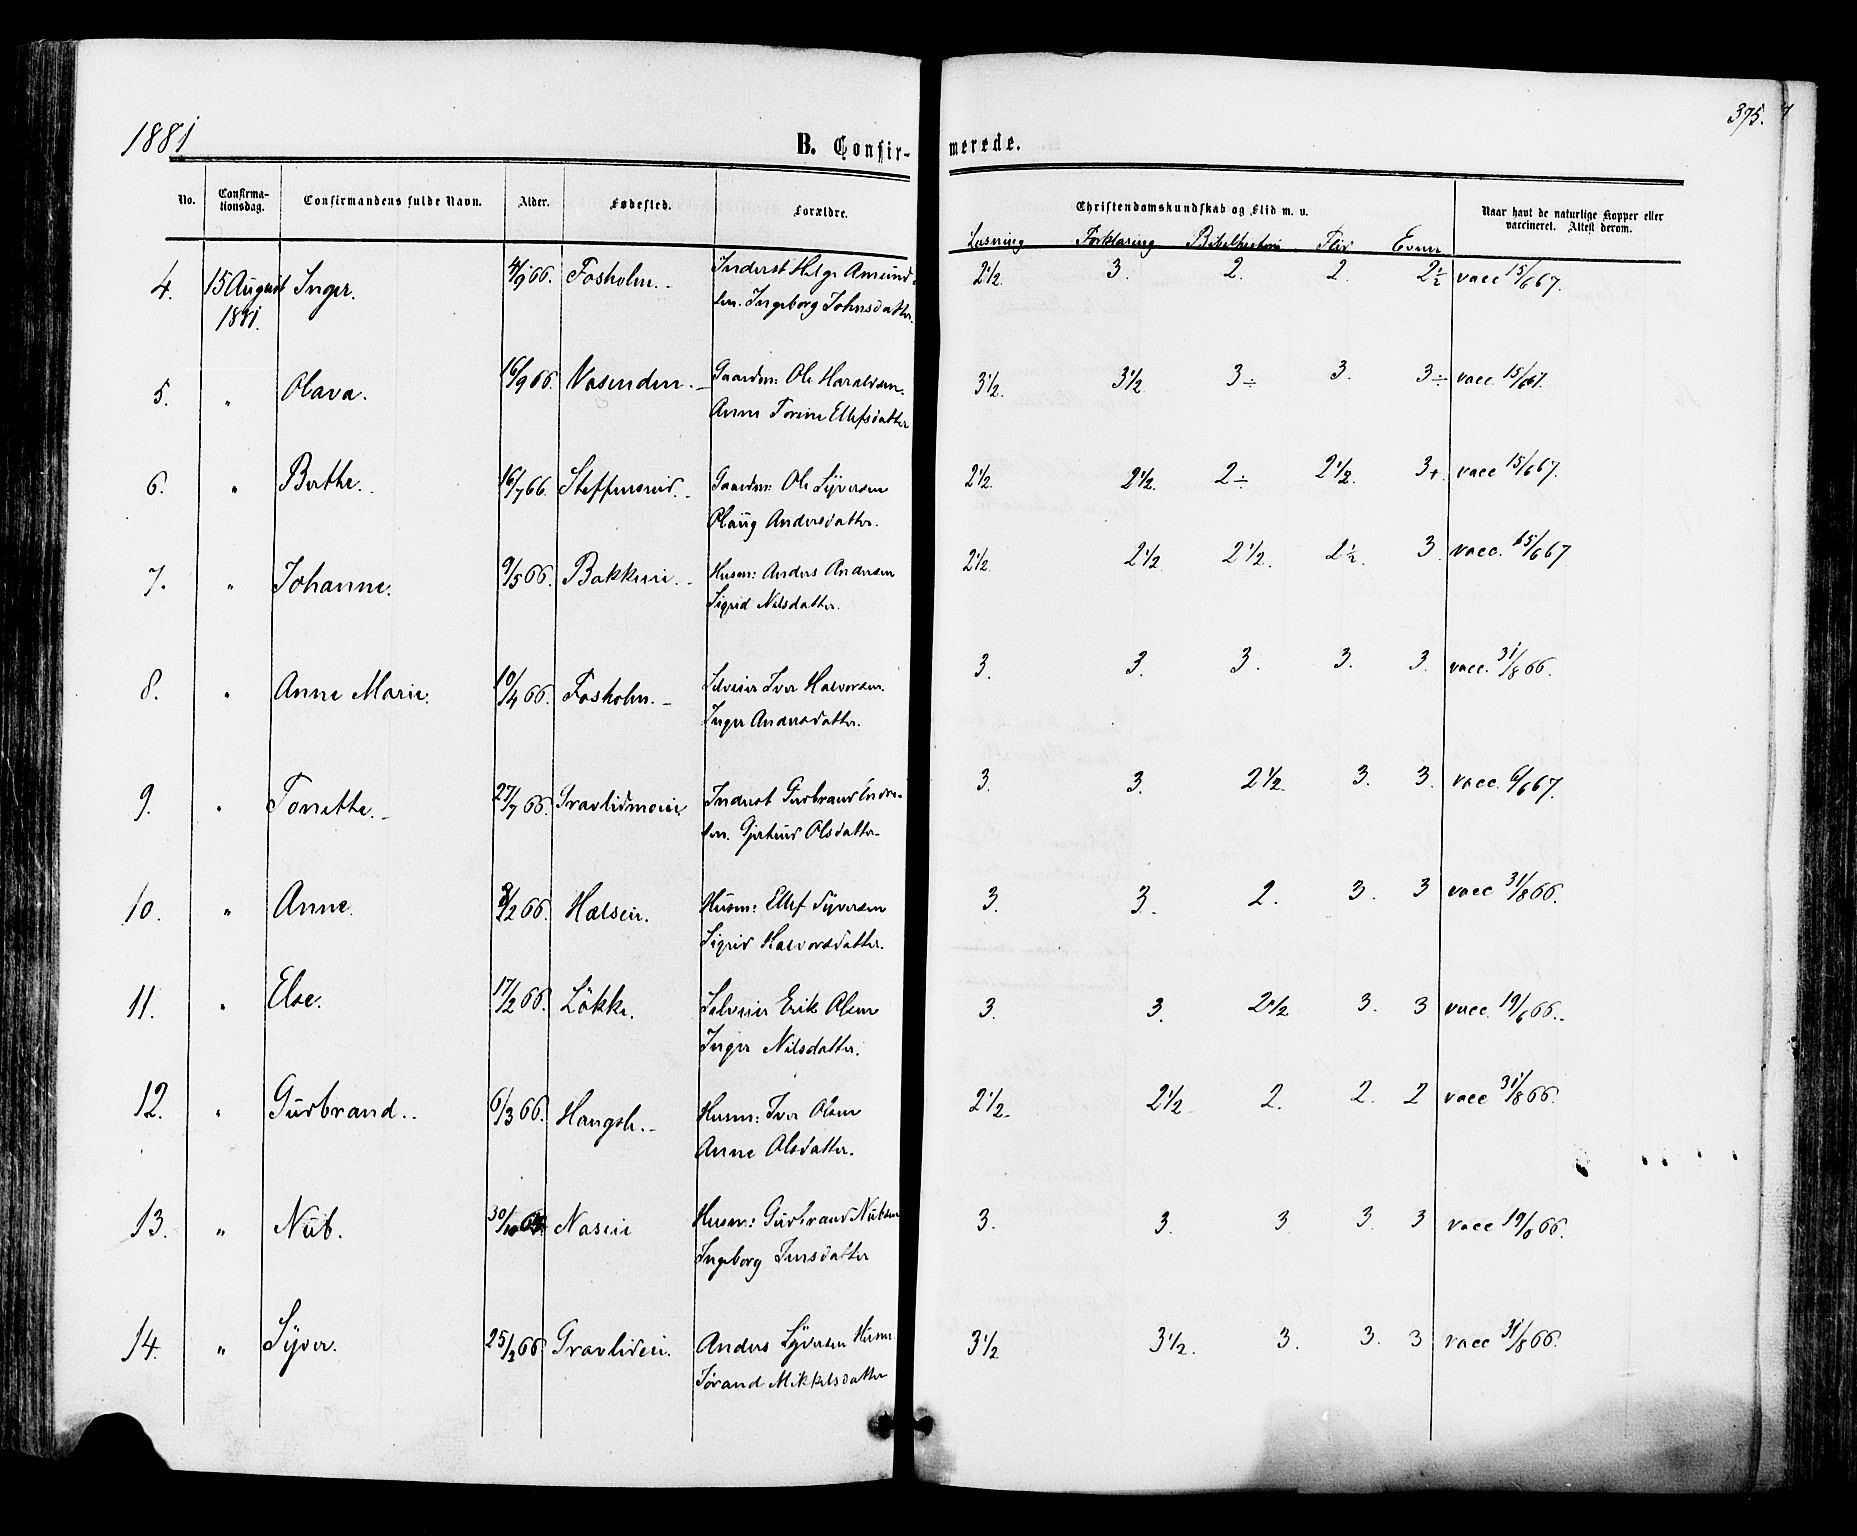 1881
375.
B. Confirmerede.
No. Confirmationsdag. Confirmandens fulde Navn. Alder. Fødested. Forældre. Christendomskundskab og Flid m. v. Naar havt de naturlige Kopper eller vaccineret. Attest derom.
Læsning Forklaring Bibelhistori Flid Evner
4. 15 August 1881. Inger. 4/9 66. Fosholm. Inderst Helge Amundsen. Ingeborg Johnsdatter. 2 1/2. 3. 2. 2. 2 ÷ vacc 15/6 67.
5. " Olava. 16/9 66. Nosenden. Gaardm: Ole Haraldsen. Anne Torine Ellefsdatter 3 1/2. 3 1/2. 3 ÷ 3. 3 ÷ vacc. 15/6 67.
6. " Berthe. 16/7 66. Steffensrud. Gaardm: Ole Syversen Olaug Andersdatter. 2 1/2. 2 1/2. 2 ÷ 2 1/2. 3+. vacc 15/6 67.
7. " Johanne. 9/5 66. Bakkeie. Husm: Anders Andersen Sigrid Nilsdatter. 2 1/2. 2 1/2 2 1/2. 2 1/2. 3 vacc. 15/6 67
8. " Anne Marie. 10/4 66. Fosholm. Selveier Iver Halvorsen. Inger Andersdatter. 3. 3. 3. 3. 3. vacc. 31/8 66.
9. " Tonette. 27/7 66. Gravlidmoeie. Inderst Gudbrand Endresen. Gjertrud Olsdatter 3. 3. 2 1/2. 3. 3. vacc. 6/6 67.
10. " Anne. /2 66. Halseie. Husm: Ellef Syversen Sigrid Halvorsdatter. 3. 3. 2. 3. 3 vacc 31/8 66.
11. " Else. 17/2 66. Løkke. Selveier Erik Olsen Inger Nilsdatter. 3. 3. 2 1/2 3. 3 vacc. 19/6 66.
12. " Gudbrand. 6/3 66. Haugsl. Husm: Iver Olsen Anne Olsdatter. 2 1/2. 2 1/2 2. 2. 2 vacc 31/8 66.
13. " Nub. 30/10 Naseie Husm: Gudbrand Nubsen Ingeborg Jensdatter 3. 3. 3 3. 3 vacc 19/6 66.
14. " Syver. 25/2 66 Gravlideie. Anders Syversen Husm. Jørand Mikkelsdatter 3 1/2 3 1/2. 3. 3. 3 vacc 31/8 66.